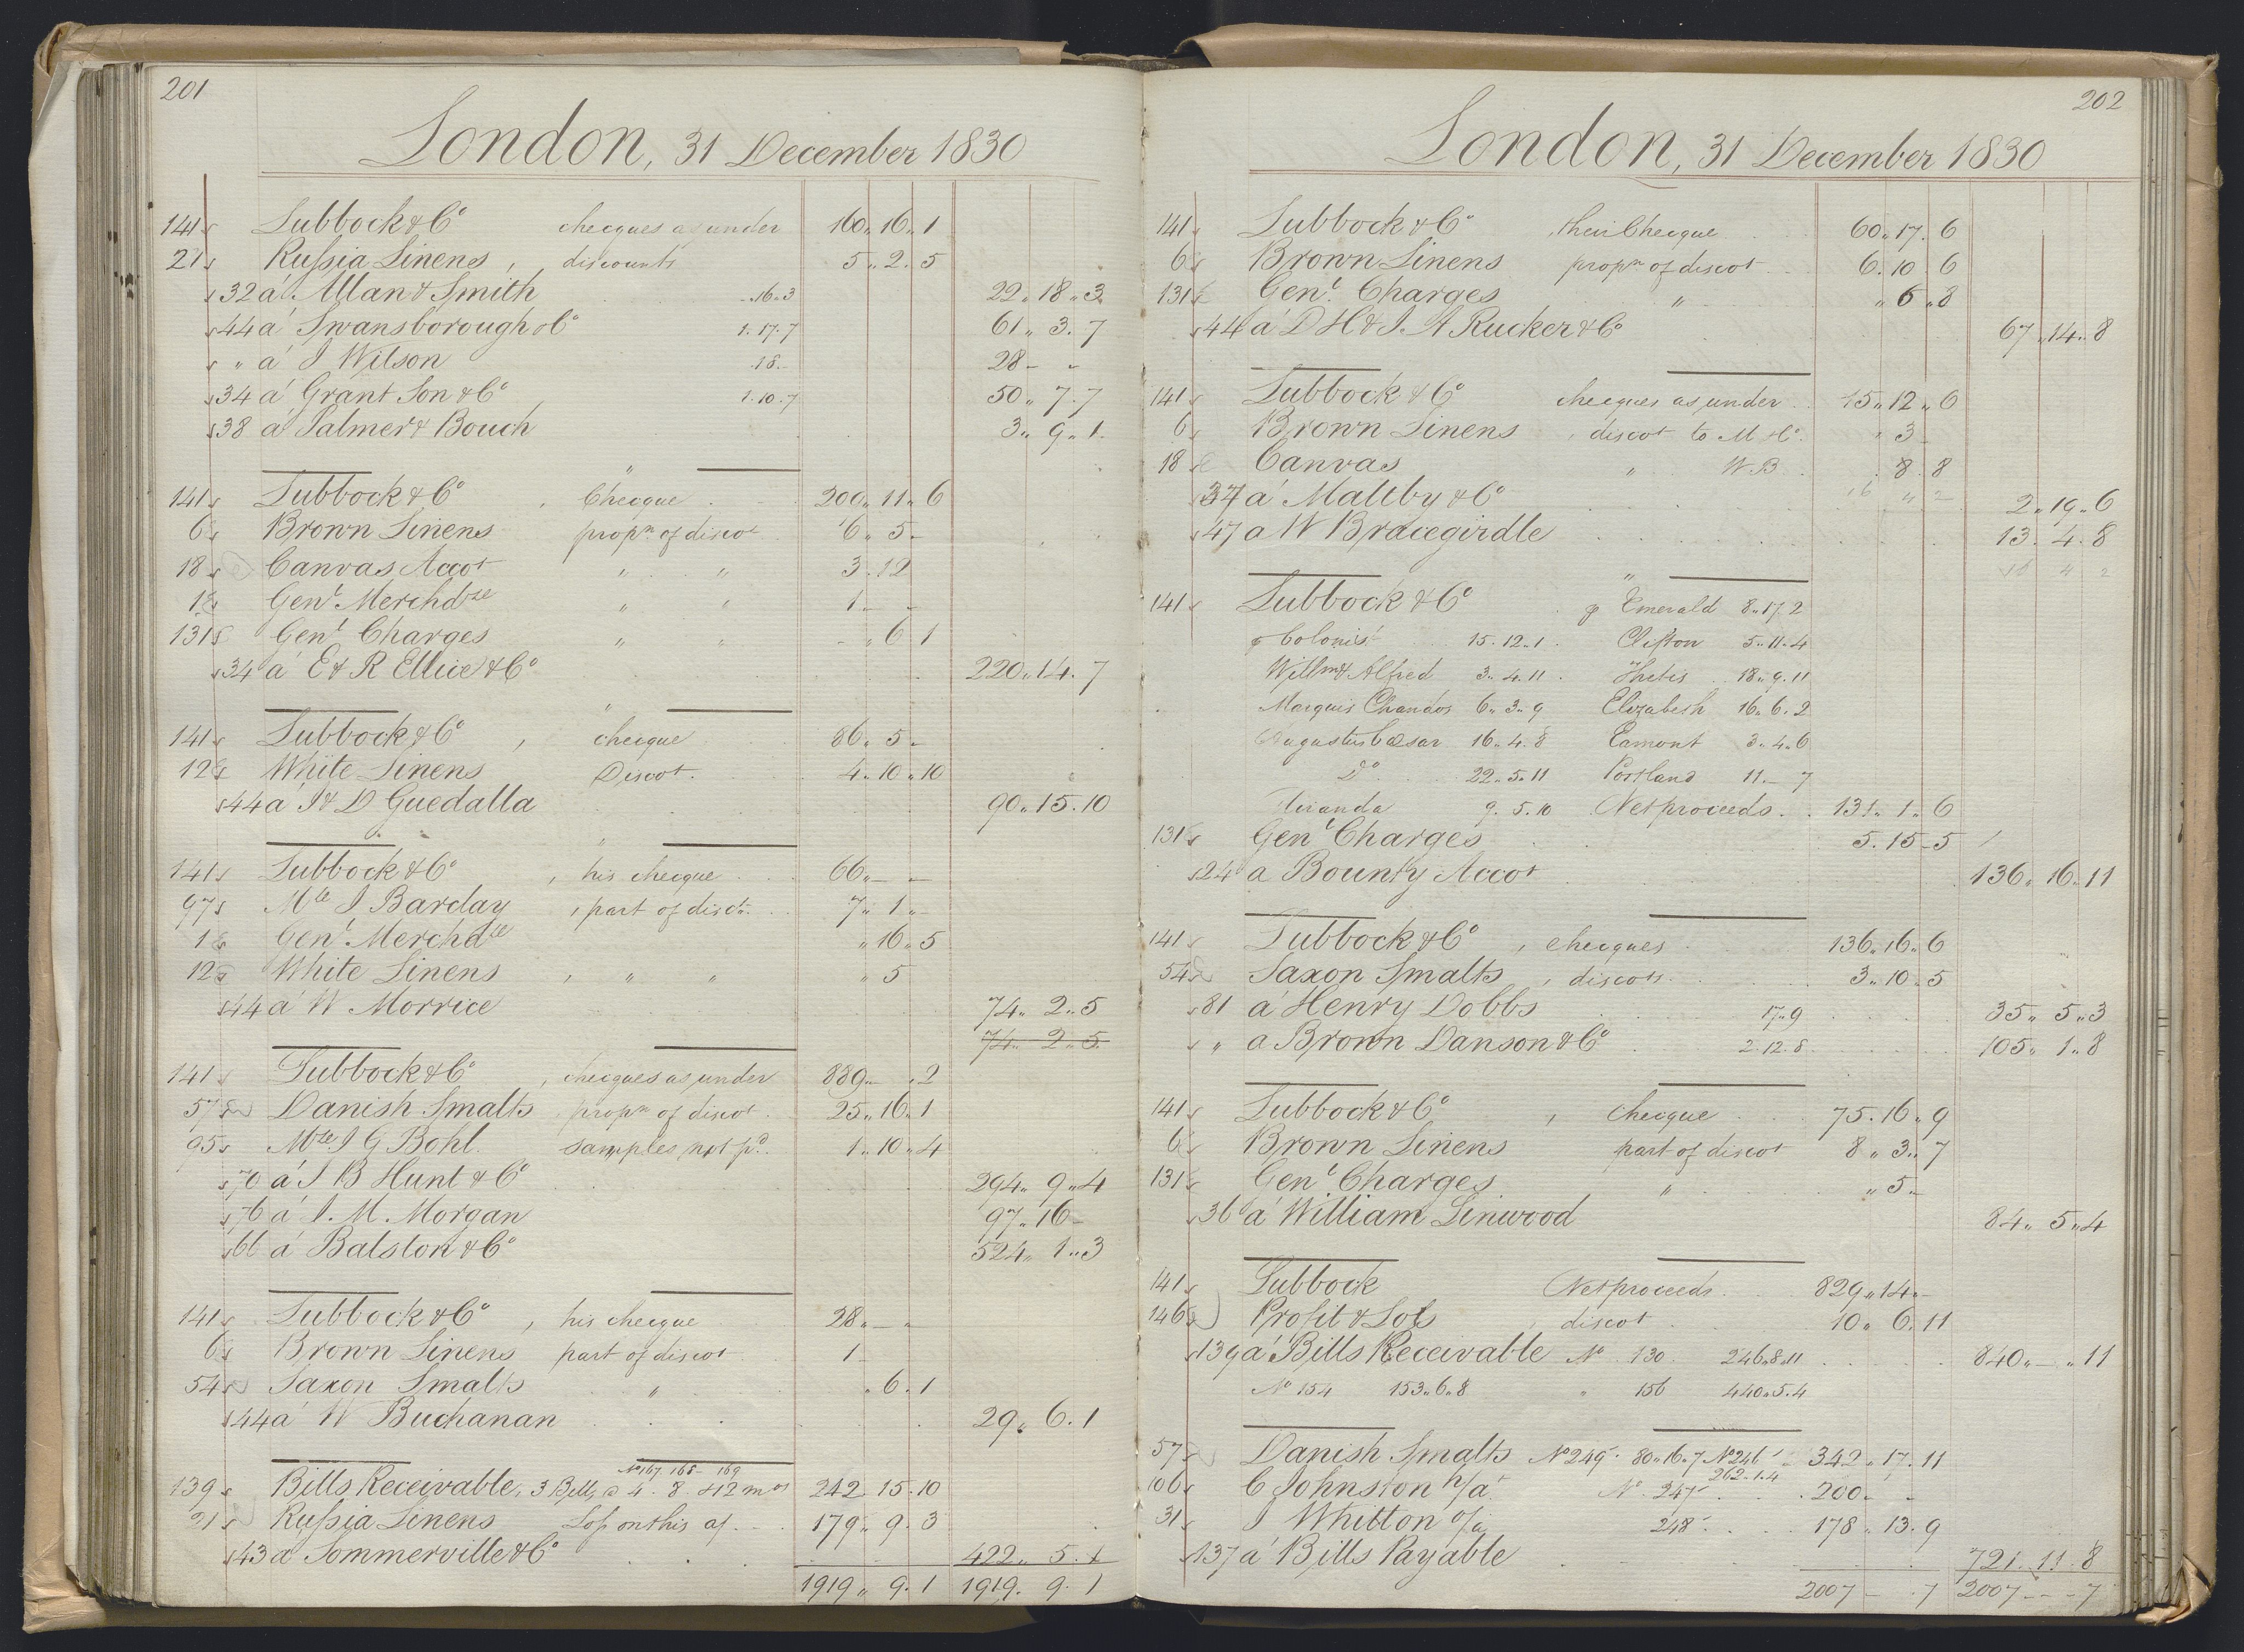 201
London, 31 December 1830
141 Lubbock & Co checques as under 160.. 16.. 1
21 Russia Linens, discounts 5.. 2. 5
32 á Allan & Smith ..16..3 22.. 18.. 3
44 á Swansborough & Co 1.17.7 61.. 3. 7
" á J Wilson .18.- 28 - -
34 á Grant Son & Co 1.10.7 50.. 7. 7
38 á Palmer & Bouch 3.. 9.. 1
"
141 Lubbock & Co, Checque 200.. 11.. 6
6 Brown Linens propn of discot 6.. 5 -
18 Canvas Accot " " 3. 12
1 Genl Merchdze " " 1 - -
131 Genl Charges " " - .. 6 1
34 á E & R Ellice & Co 220.. 14. 7
"
141 Lubbock & Co, checque 86.. 5 -
12 White Linens Discot. 4.. 10.. 10
44 á J & D Guedalla 90.. 15. 10
"
141 Lubbock & Co, his checque 66.. - -
97 Mdze J Barclay, part of disct. 7.. 1.. -
1 Genl Merchdze .. 16.. 5
12 White Linens, " " .. 5
44 á W Morrice 74.. 2.. 5
74.. 2.. 5
141 Lubbock & Co, checques as under 889.. - .. 2
57 Danish Smalts propn of discot. 25.. 16.. 1
95 Mdze J G Bohl. samples not pd. 1.. 10.. 4
70 á J B Hunt & Co 294.. 9.. 4
76 á J. M. Morgan 97.. 16 -
66 á Balston & Co 524.. 1.. 3
141 Lubbock & Co, his checque 28.. - -
6 Brown Linens part of discot 1 -
54 Saxon Smalts " .. 6. 1
44 á W Buchanan 29.. 6. 1
No 167. 168 - 169
139 Bills Receivable, 3 Bills @ 4. 8. & 12 mos 242 15. 10
21 Russia Linens Loss on this a/ 179.. 9. 3
43 á Sommerville & Co 422.. 5. 1
1919.. 9. 1 1919. 9. 1
202
London, 31 December 1830
141 Lubbock & Co, their Checque 60.. 17. 6
6 Brown Linens propn of discot 6. 10. 6
131 Genl. Charges " .. 6.. 8
44 á D H & J. A Rucker & Co 67.. 14.. 8
141 Lubbock & Co checques as under 15.. 12.. 6
6 Brown Linens, discot to M & Co. .. 3 -
18 Canvas " W. B . 8. 8
16 4 2
37 á Maltby & Co 2.. 19.. 6
47 a W Bracegirdle 13. 4. 8
"
141 Lubbock & Co p Emerald 8..17.2
p Colonist 15.12..1. Clifton 5..11..4
Willm & Alfred 3..4.11. Thetis 18..9.11
Marquis Chandos 6..3..9 Elizabeth 16..6.2
Augustus Cæsar 16..4.8 Eamont 3..4..6
Do 22..5.11 Portland 11. - 7
Miranda 9.5.10 Net proceeds 131.. 1.. 6
131 Genl Charges 5. 15 - 5
24 a Bounty Accot 136.. 16.. 11
141 Lubbock & Co, checques 136.. 16.. 6
54 Saxon Smalts, discots. 3.. 10. 5
81 á Henry Dobbs 17..9 35.. 5.. 3
" a Brown Danson & Co 2.12.8 105.. 1.. 8
141 Lubbock & Co, Checque 75. 16.. 9
6 Brown Linens part of discot 8.. 3.. 7
131 Genl Charges " .. 5..
36 á William Linwood 84.. 5.. 4
141 Lubbock Net proceeds 829.. 14.. -
146 Profit & Loss, discot 10.. 6. 11
139 á Bills Receivable No 130. 246..8..11 840.. - .. 11
No 154 153..6..8 " 156 440..5.4
57 Danish Smalts No 249. 80..16..7 No 246 342.. 17. 11
262.1.4
106 C Johnston n/a No. 247 200 - -
31 J Whitton o/a 248 178.. 13. 9
137 á Bills Payable 721. 11. 8
2007 - . 7 2007 - - 7